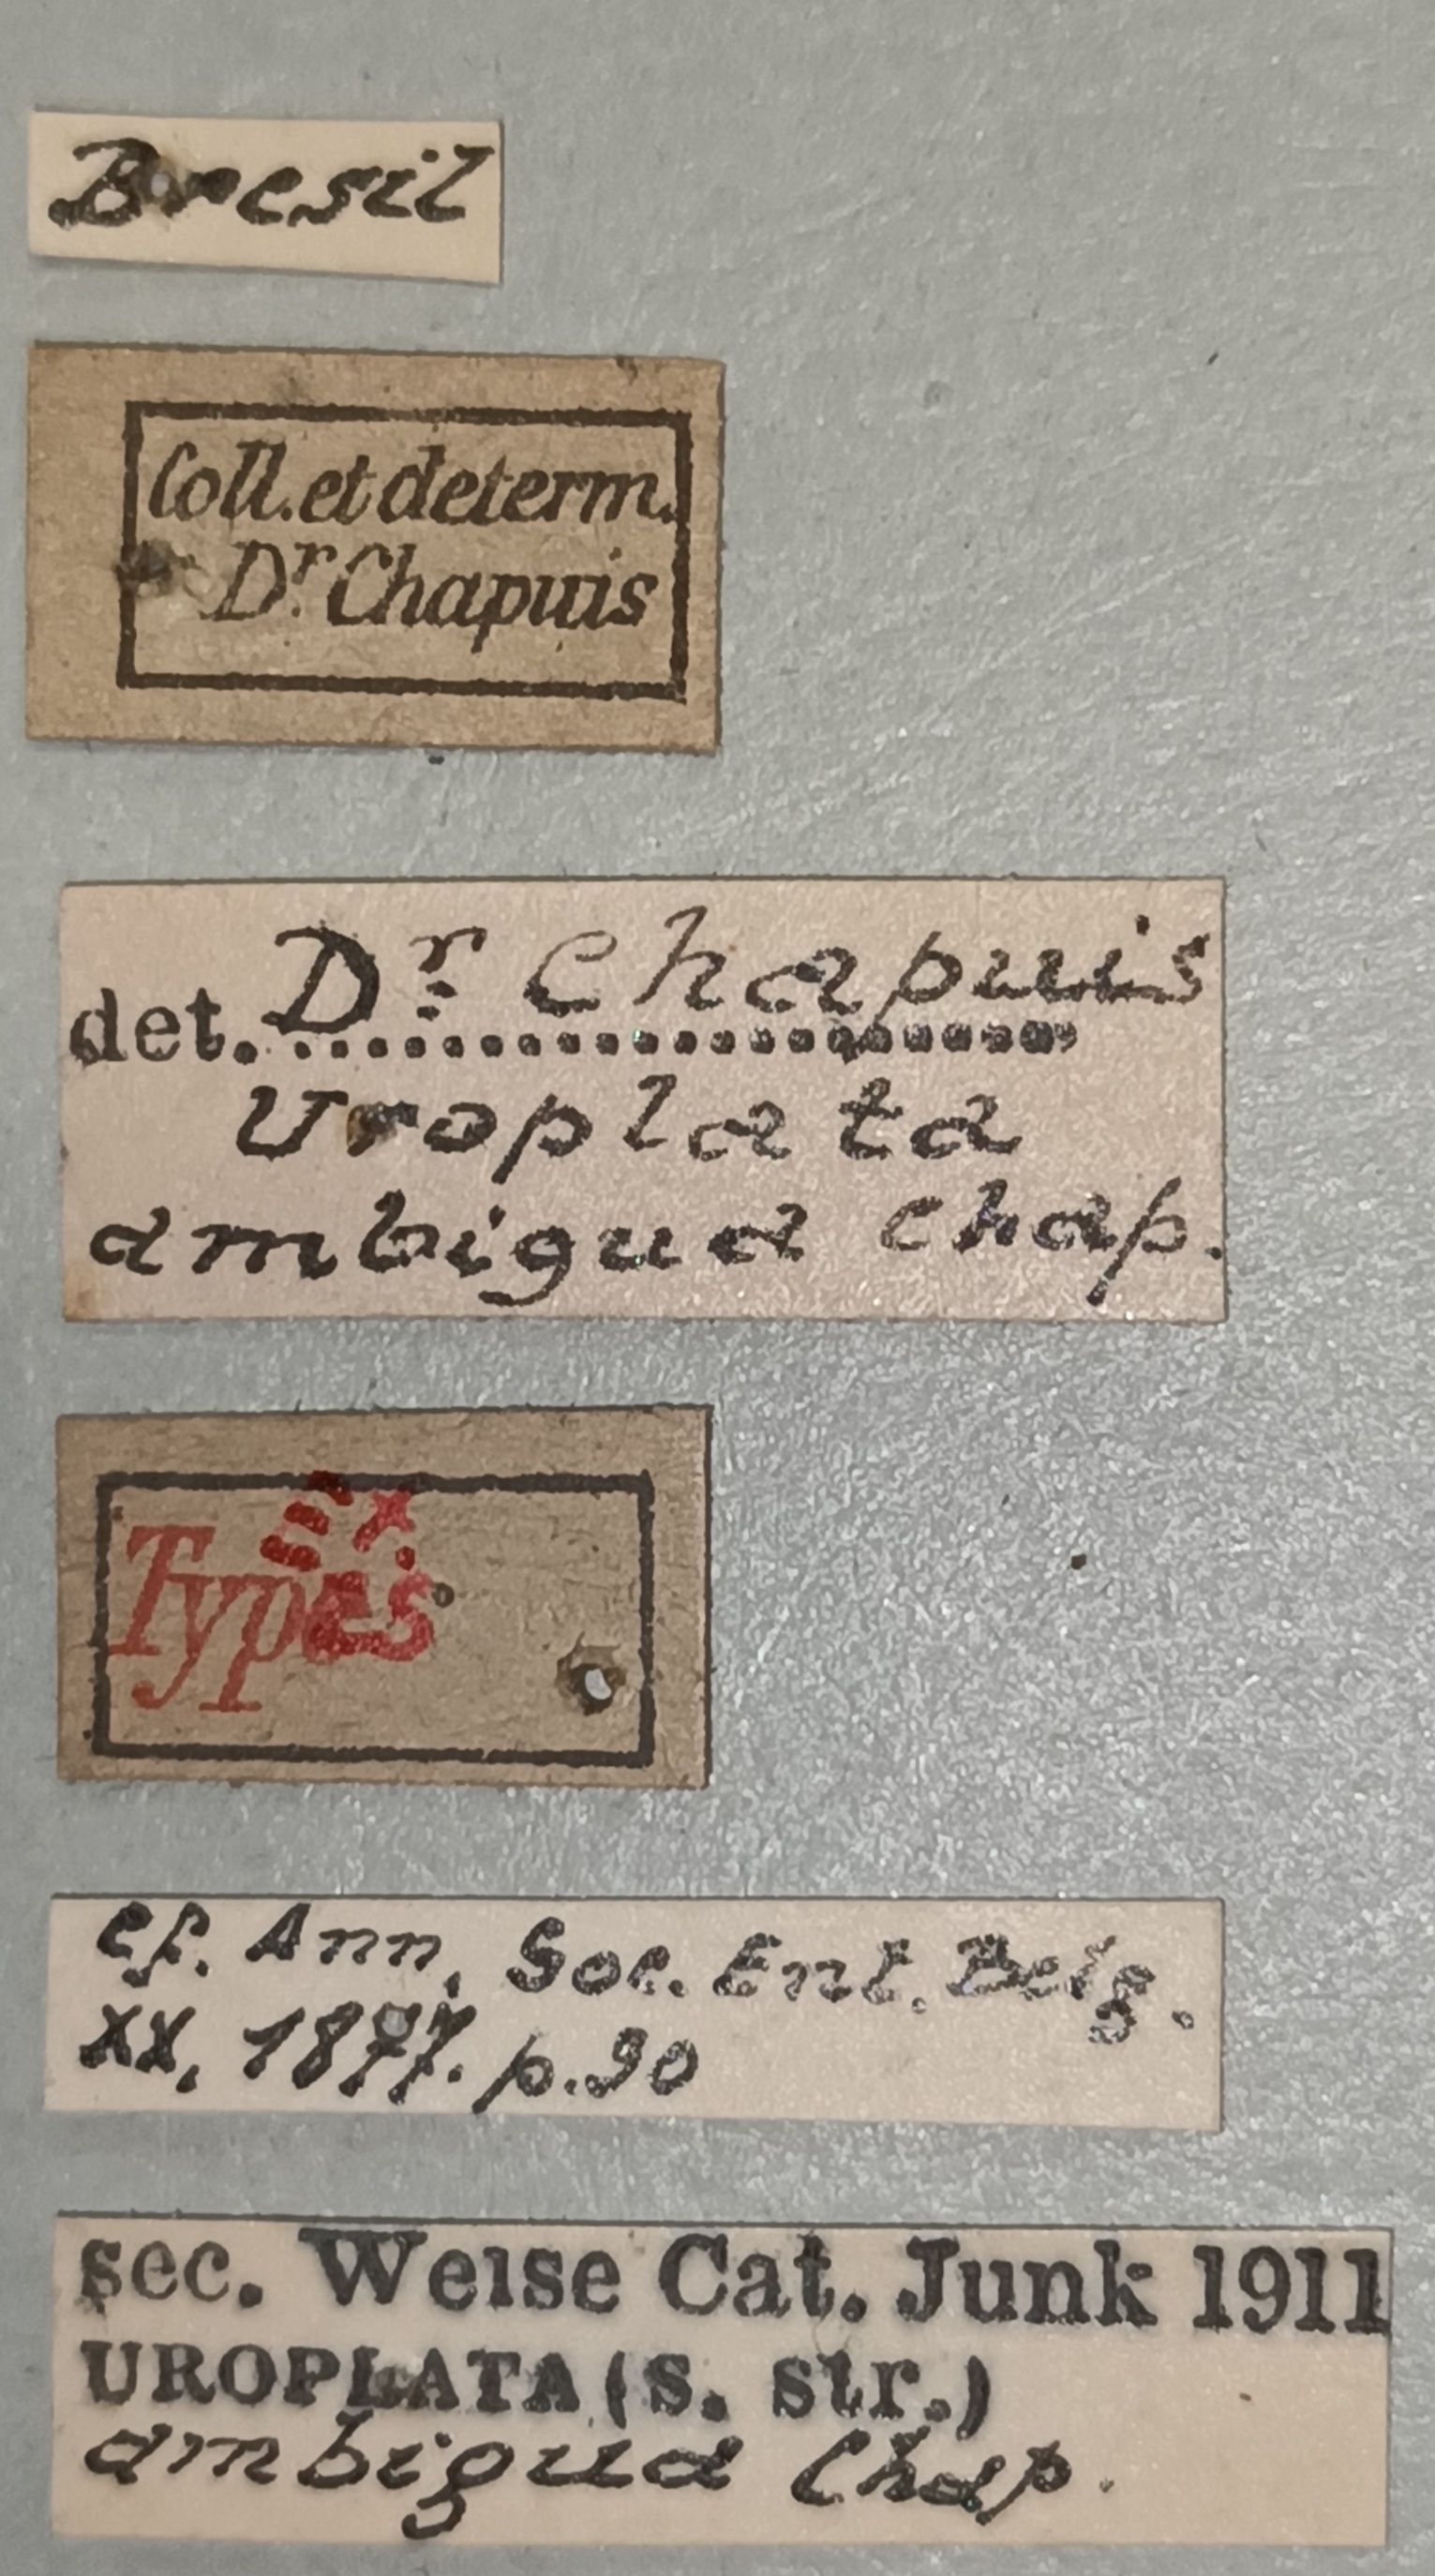 Bresil
Coll. et determ.
Dr. Chapuis
det. Dr. Chapuis
Uroplata
ambigua Chap.
Types
cf. Ann. Soc. Ent. Belg.
XX, 1877. p.30
sec. Weise Cat. Junk 1911
UROPLATA (s. str.)
ambigua Chap.